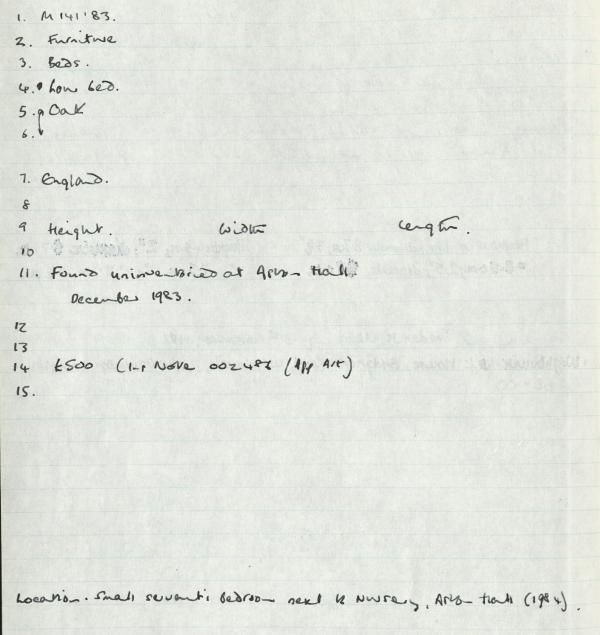 1. M 141'83.
2. Furniture
3. Beds.
4. Low bed.
5. Oak
6.
7. England.
8
9 Height. Width Length.
10
11. Found uninventoried at Aston Hall.
December 1983.
12
13
14 £500 (
15.
Location. Small servant's bedroom next to Nursery, Aston Hall (1984).